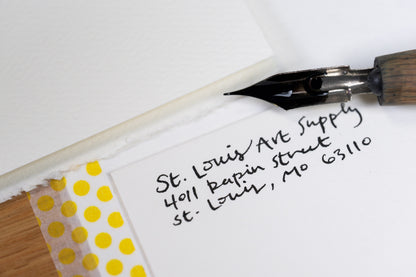 St. Louis Art Supply
4011 Papin Street
St. Louis, MO 63110